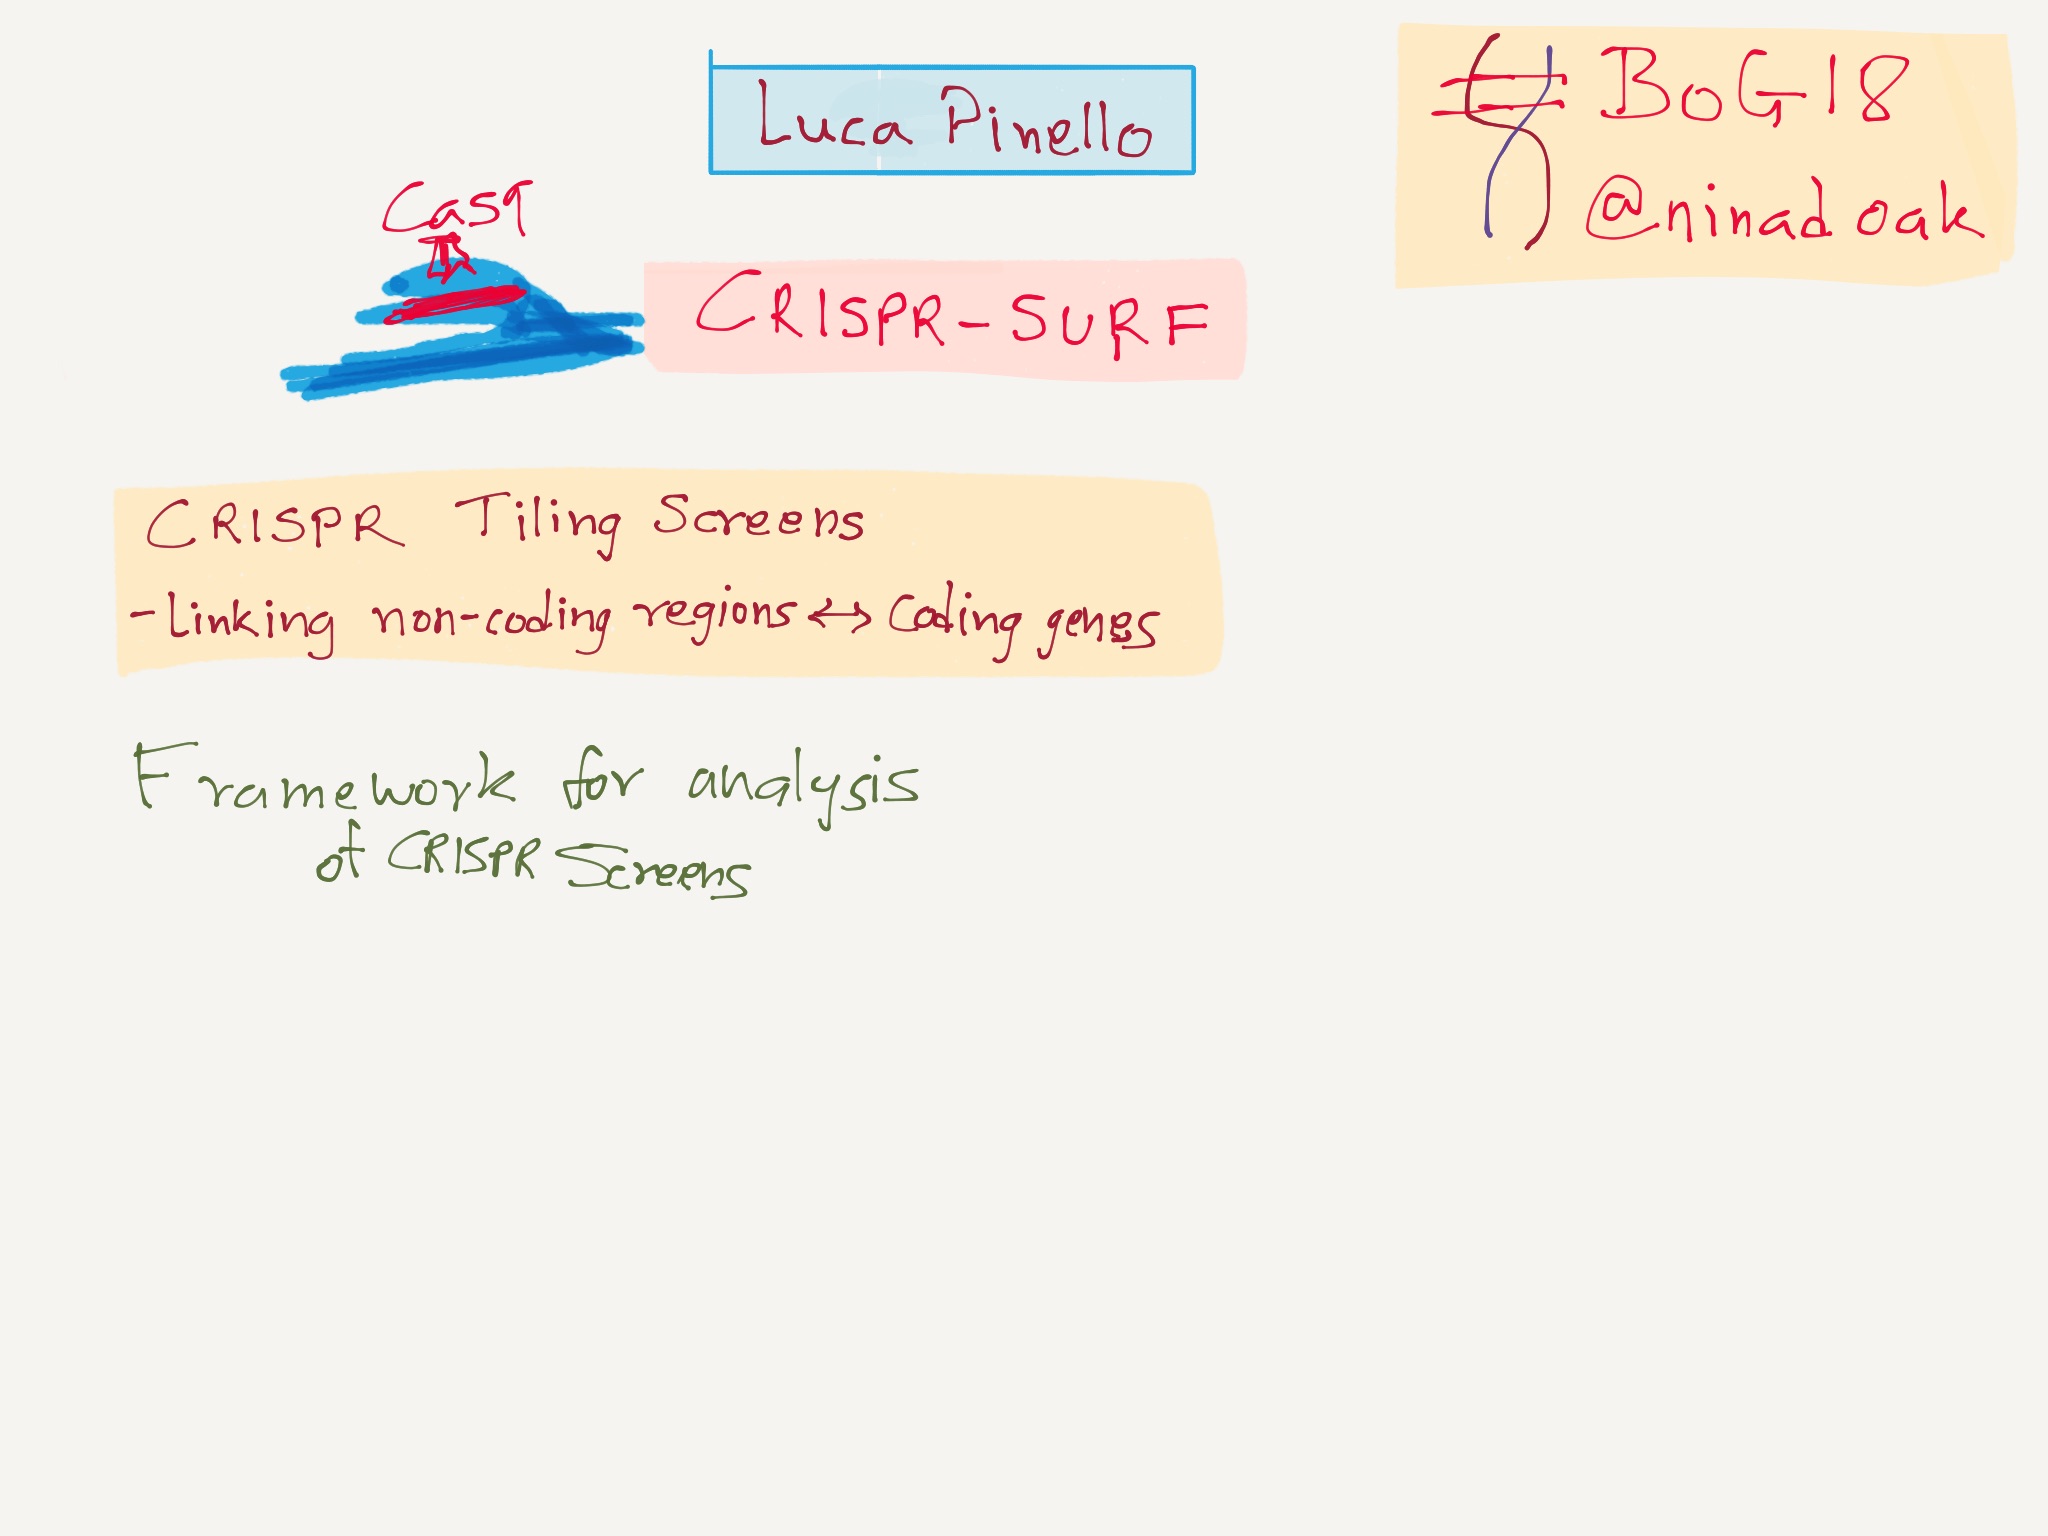 Luca Pinello
# BoG18
@ninadoak
Cas9
CRISPR-SURF
CRISPR Tiling Screens
- Linking non-coding regions ↔ Coding genes
Framework for analysis
of CRISPR Screens